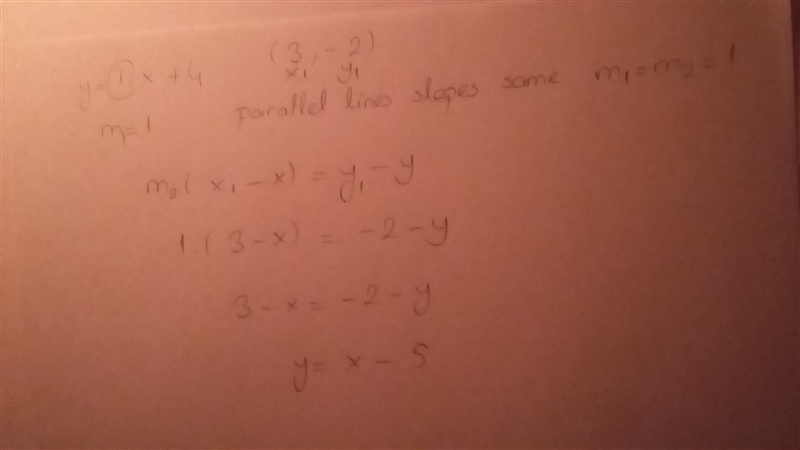 y=1.x+4 (3,-2)
x₁ y₁
m=1 parallel lines slopes same m₁=m₂=1
m₂.(x₁-x)=y₁-y
1.(3-x)=-2-y
3-x=-2-y
y=x-5